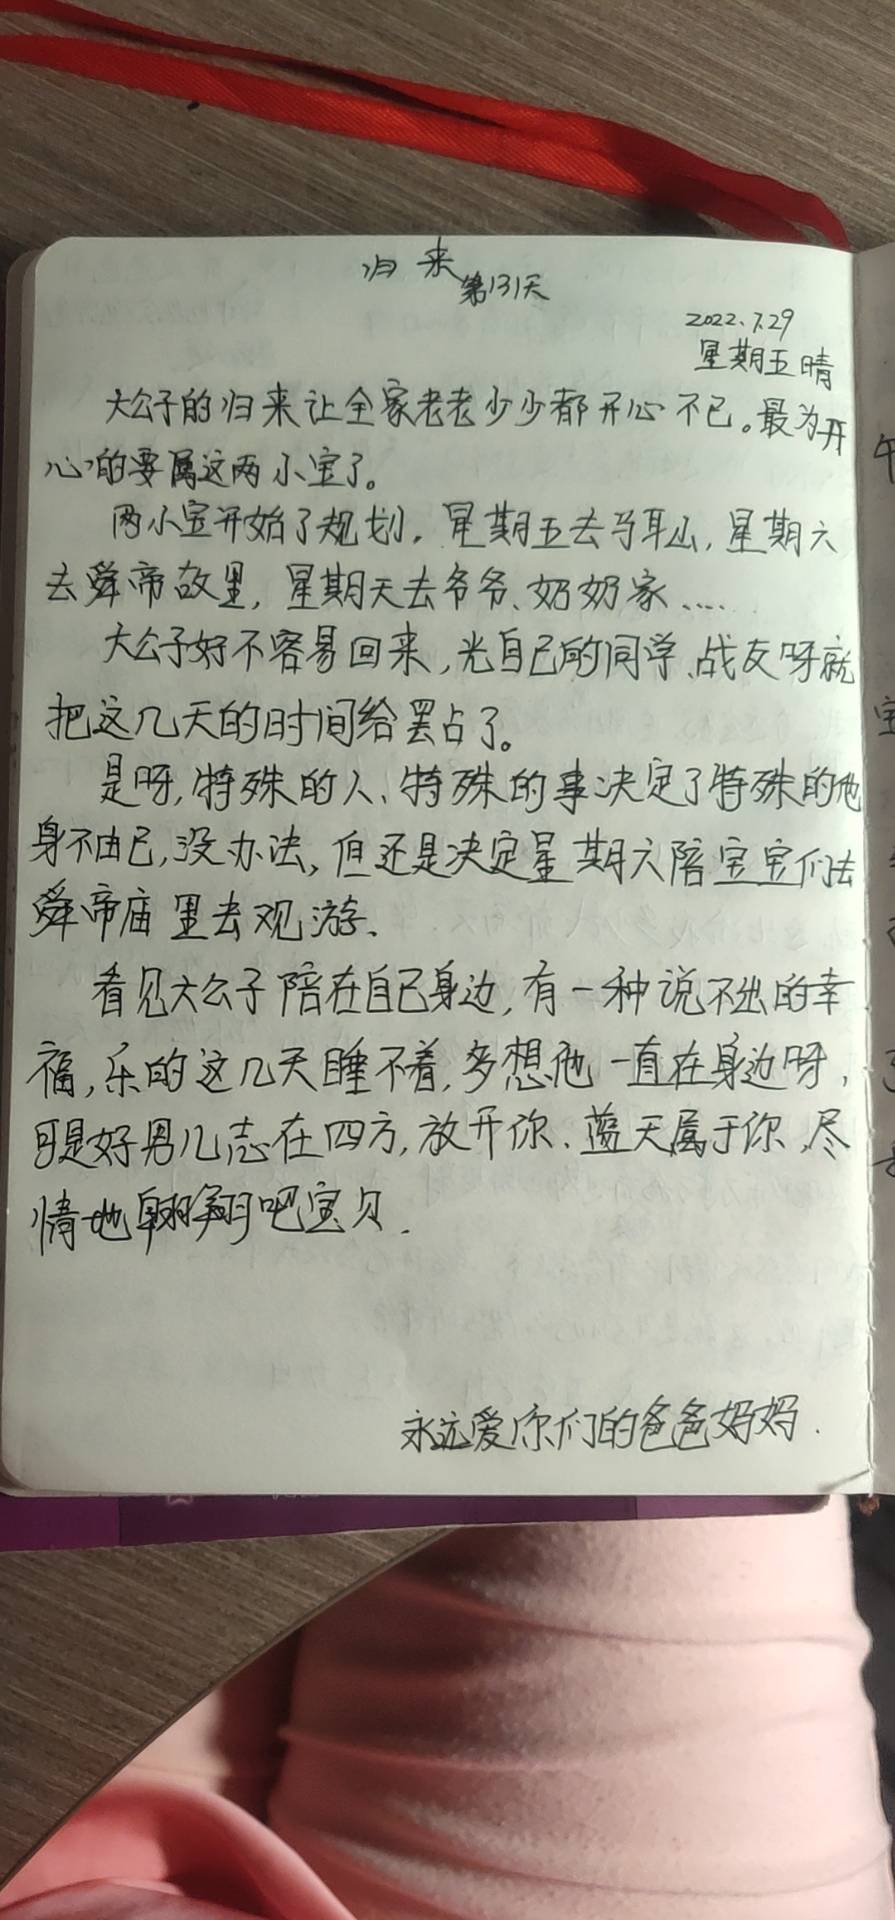 归来
第131天
2022.7.29
星期五晴
大公子的归来让全家老老少少都开心不已。最为开
心的要属这两小宝了。
两小宝开始了规划，星期五去马耳山，星期六
去舜帝故里，星期天去爷爷、奶奶家....
大公子好不容易回来，光自己的同学、战友呀就
把这几天的时间给罢占了。
是呀，特殊的人、特殊的事决定了特殊的他
身不由已，没办法，但还是决定星期六陪宝宝们去
舜帝庙里去观游.
看见大公子陪在自己身边，有一种说不出的幸
福，乐的这几天睡不着，多想他一直在身边呀，
可是好男儿志在四方，放开你、蓝天属于你，尽
情地翱翔吧宝贝.
永远爱你们的爸爸妈妈.